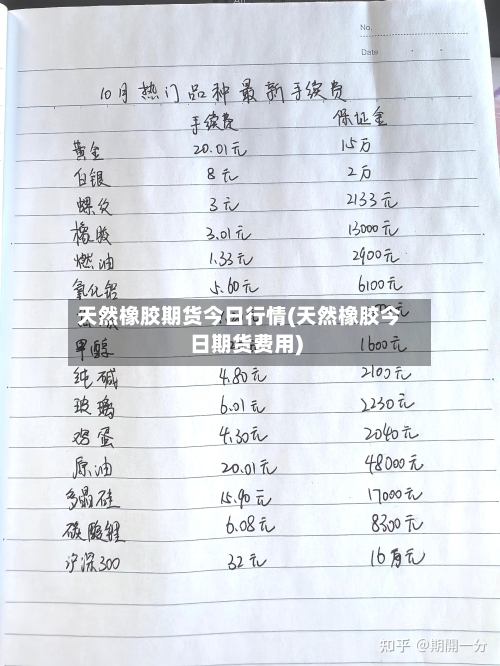 No.
Date
10月热门品种最新手续费
手续费 保证金
黄金 20.01元 15万
白银 8元 2万
螺纹 3元 2133元
橡胶 3.01元 13000元
燃油 1.33元 2900元
氧化铝 5.60元 6100元
天然橡胶期货今日行情(天然橡胶今
日期货费用)
甲醇 1600元
纯碱 4.80元 2100元
玻璃 6.01元 2230元
鸡蛋 4.30元 2040元
原油 20.01元 48000元
多晶硅 15.90元 17000元
碳酸锂 6.08元 8300元
沪深300 32元 16万元
知乎 @期開一分